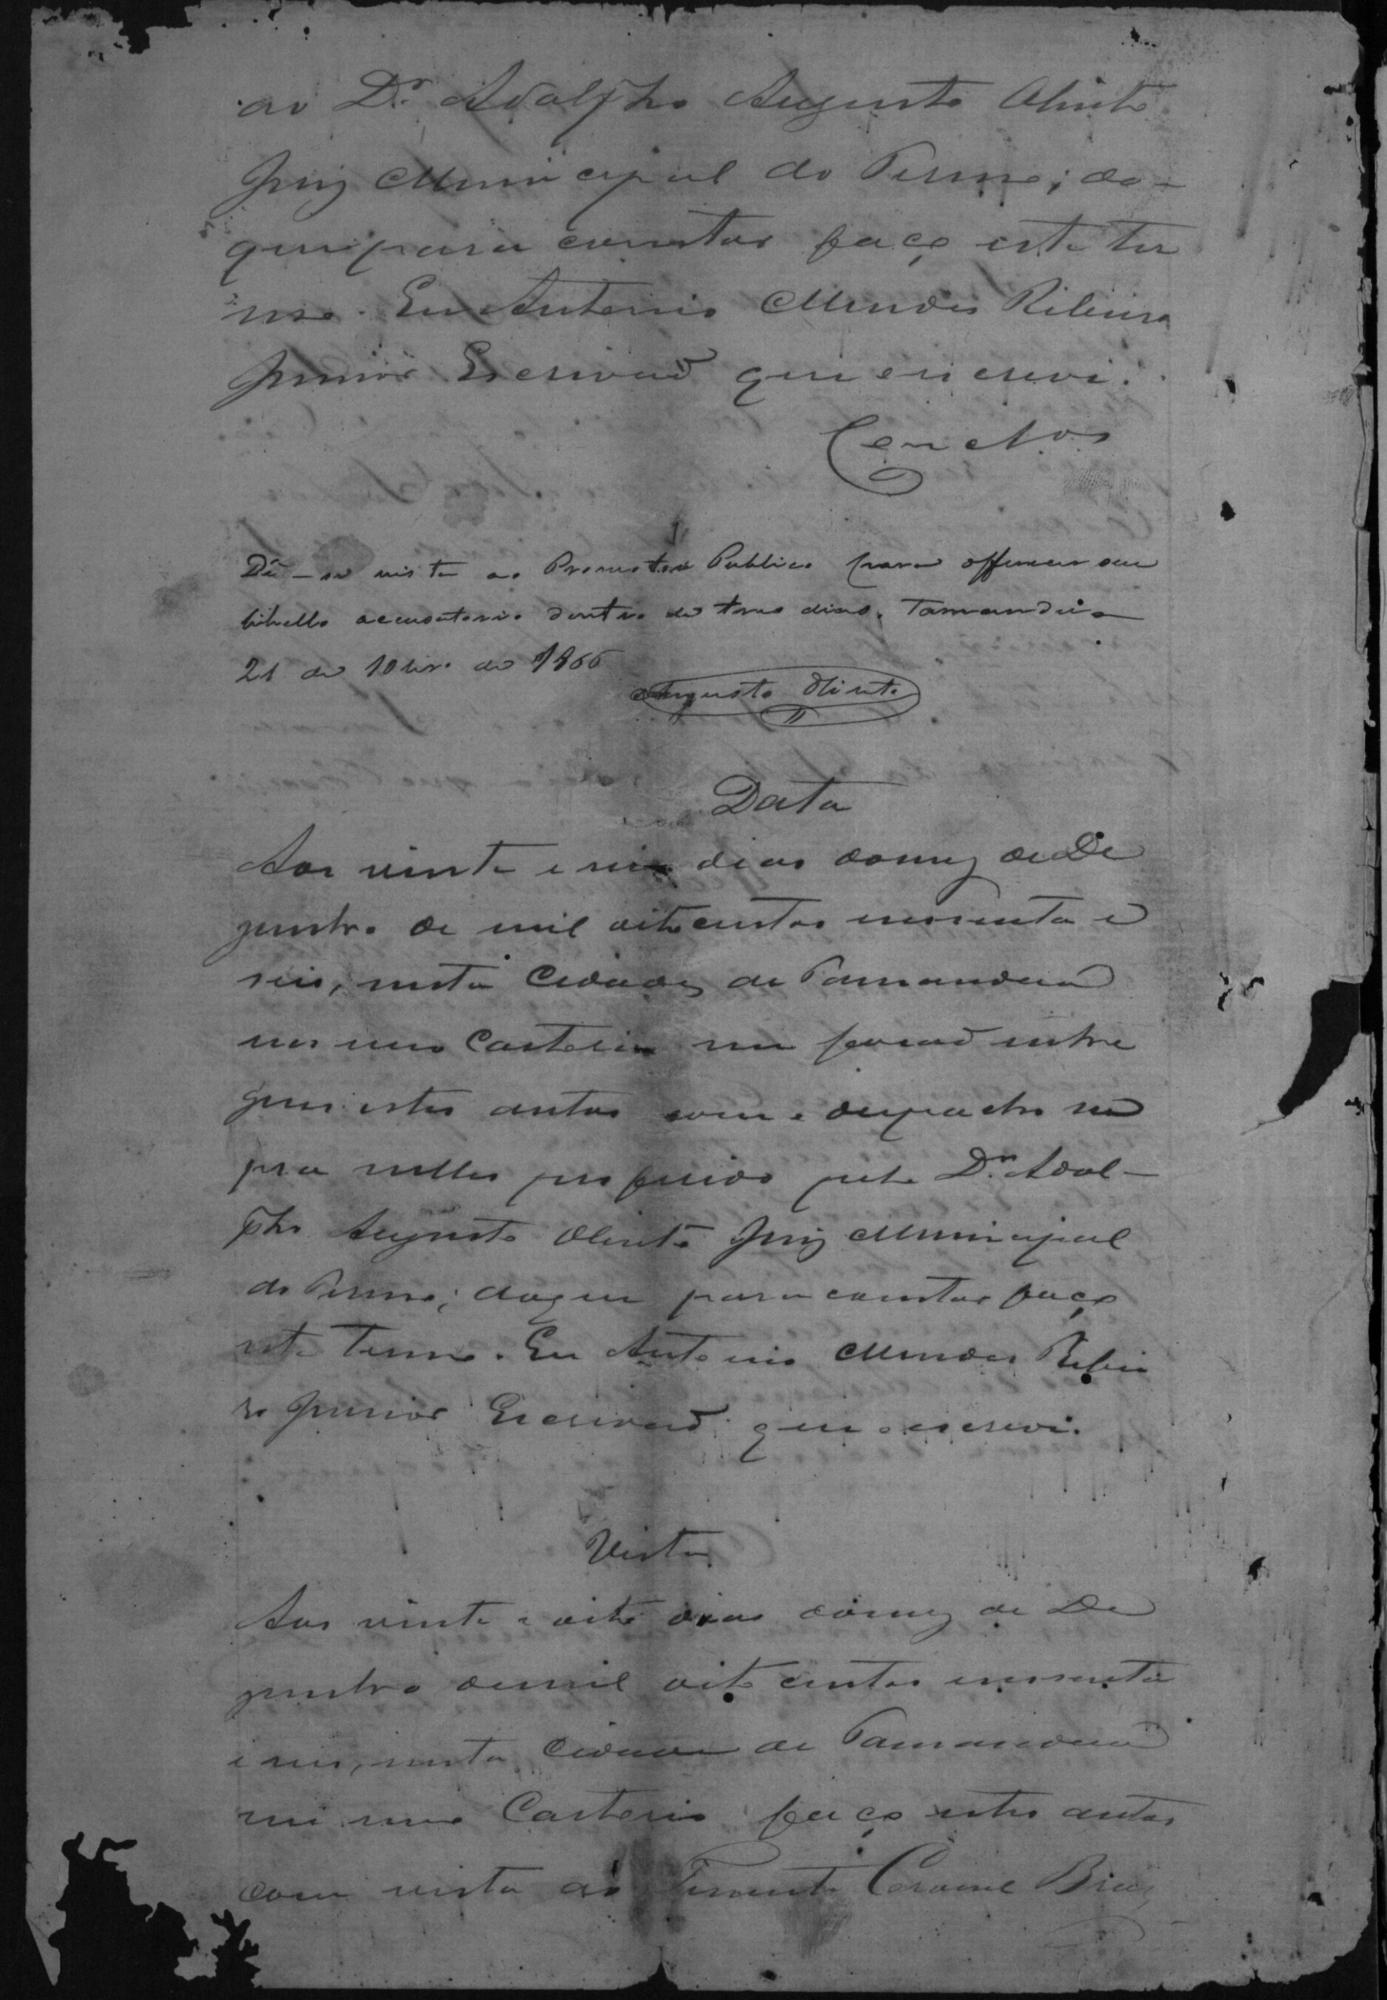 ao Dr. Adolpho Augusto Olinto
Juiz Municipal do Termo; do
que para constar faço este ter
mo. Eu Antonio Mendes Ribeiro
Junior Escrivaõ que escrevi.
Conclos
Dê-se vista ao Promotor Publico para offerecer seu
libello accusatorio dentro de tres dias. Tamanduá
21 de 10br.o de 1866
Augusto Olinto
Data
Aos vinte e um dias do mez de De
zembro de mil oitocentos sessenta e
seis, nesta Cidade de Tamanduá
em meo Cartorio me foraõ entre
gues estes autos com o despacho su
pra nelles proferido pelo Dr. Adol-
pho Augusto Olinto Juiz Municipal
do Termo; do que para constar faço
este termo. Eu Antonio Mendes Ribei
ro Junior Escrivaõ que o escrevi.
Vista
Aos vinte e oito dias do mez de De
zembro de mil oito centos sessenta
e seis, nesta Cidade de Tamanduá
em meo Cartorio faço estes autos
com vista ao Tenente Coronel Braz